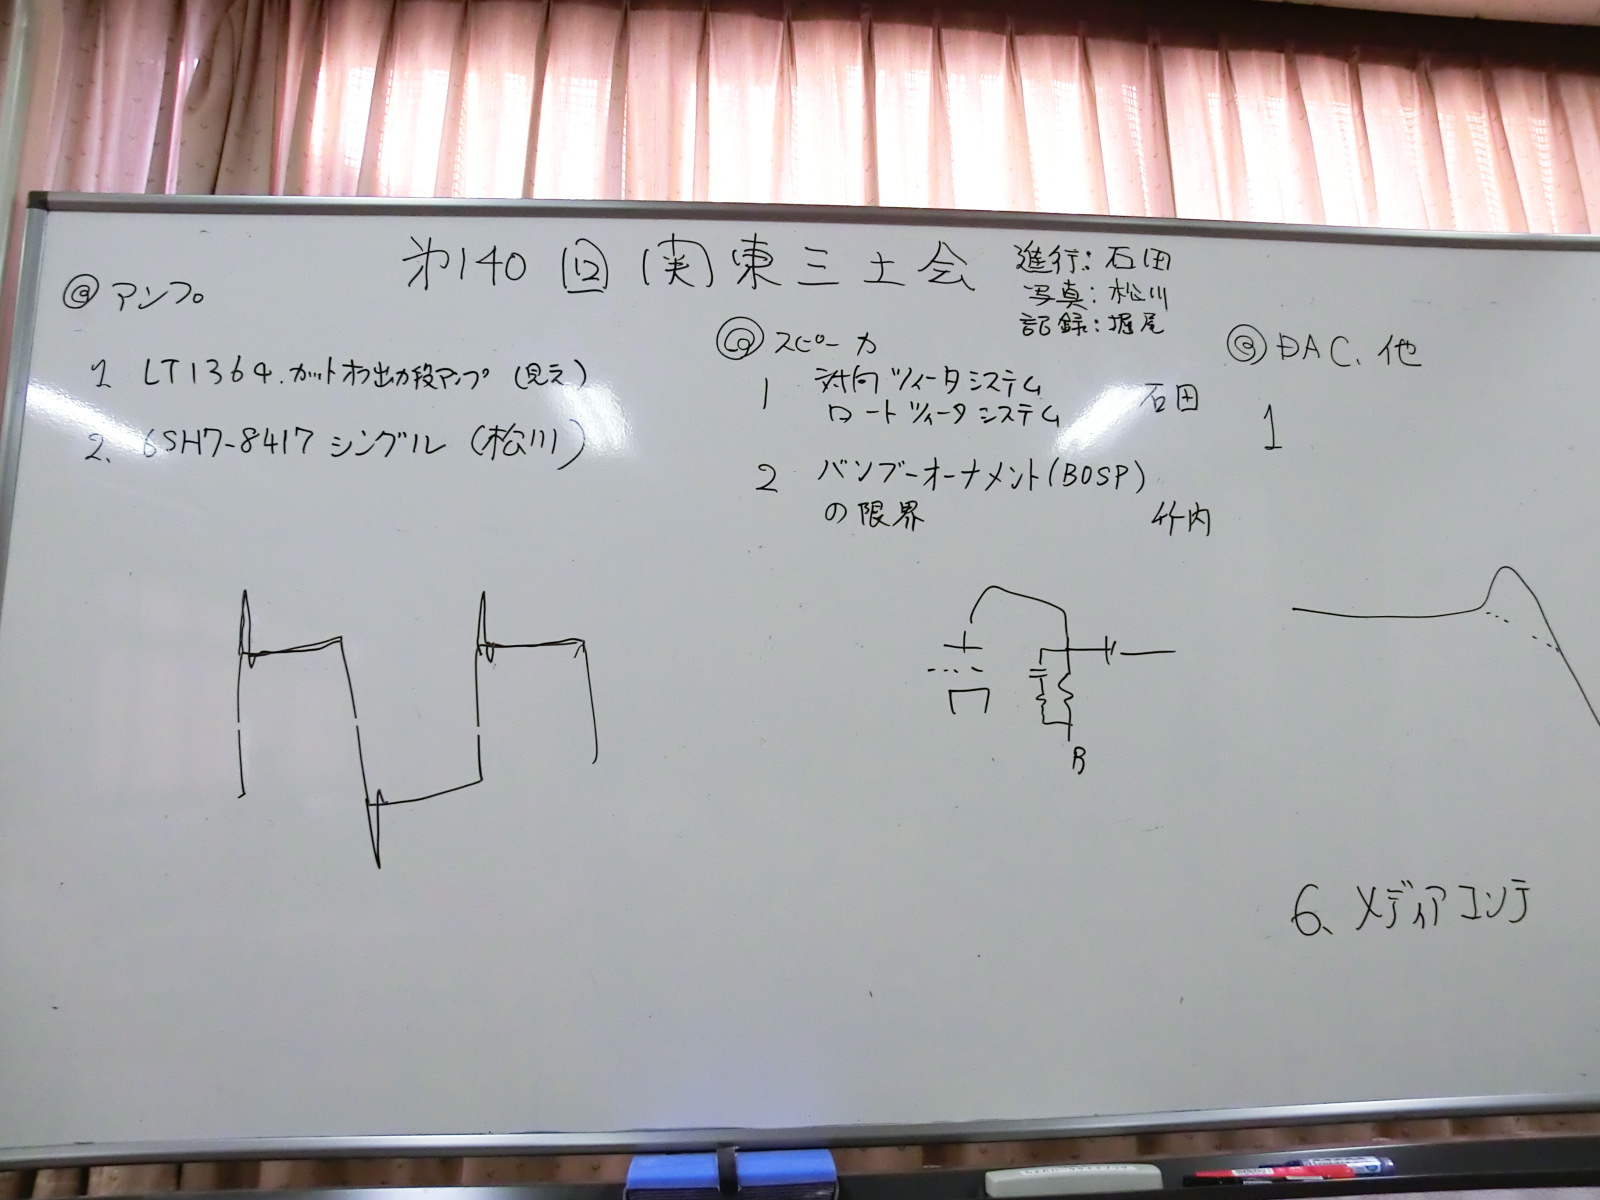 第140回 関東三土会
進行：石田
写真：松川
記録：堀尾
◎アンプ
1 LT1364.カットオフ出力段アンプ (見え)
2. 6SH7-8417 シングル (松川)
◎スピーカ
1 対向ツィータシステム
ロートツィータシステム 石田
2 バンブーオーナメント(BOSP)
の限界 竹内
◎DAC、他
1
B
6、メディアコンテ